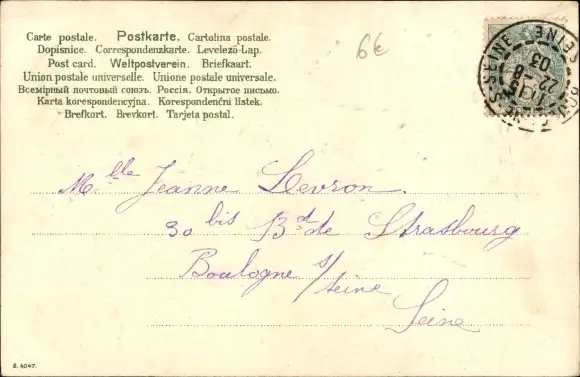 Carte postale. Postkarte. Cartolina postale.
Dopisnice. Correspondenzkarte. Levelező-Lap.
Post card. Weltpostverein. Briefkaart.
Union postale universelle. Unione postale universale.
Всемірный почтовый союзъ. Россія. Открытое письмо.
Karta korespondencyjna. Korespondenční lístek.
Brefkort. Brevkort. Tarjeta postal.
6€
SEINE
22 - 8
03
Mlle Jeanne Levron.
30 bis Bd de Strasbourg
Boulogne s/seine
Seine
S. 4047.